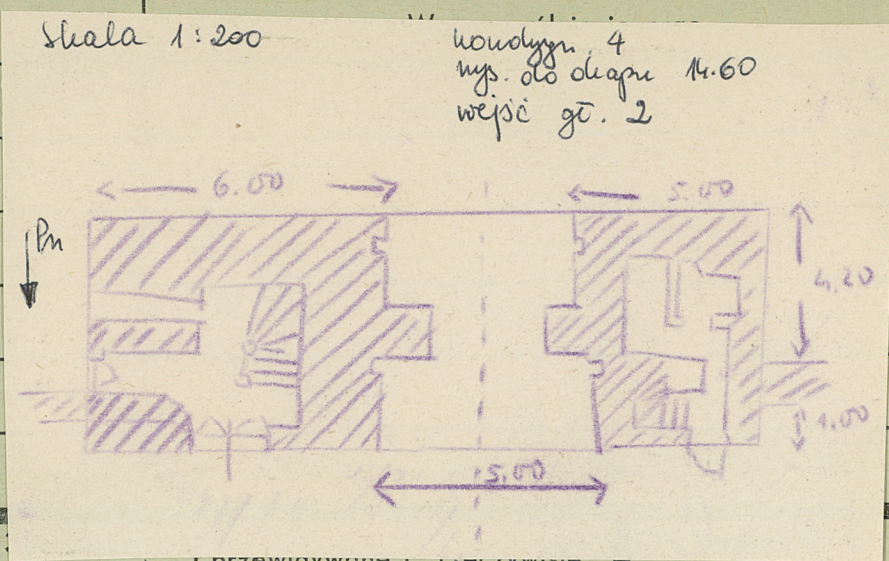 Skala 1:200
kondygn. 4
wys. do okapu 14.60
wejść gł. 2
6.00
5.00
Pn
4.20
1.00
5.00